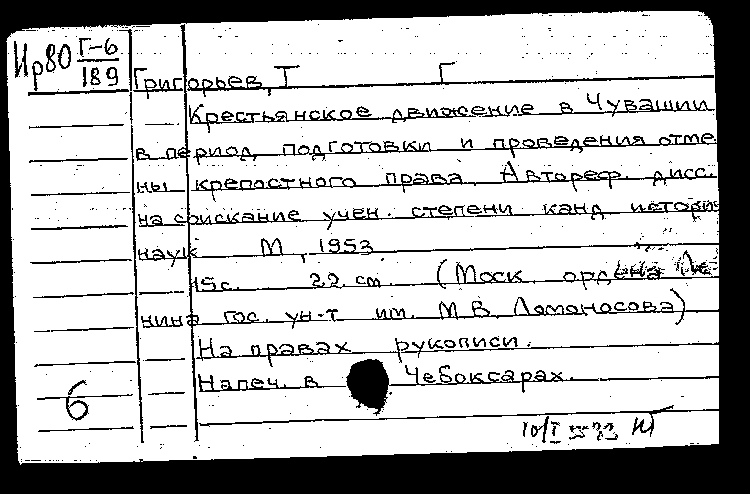 Ир80 Г-6
189
Григорьев, Т Г
Крестьянское движение в Чувашии
в период подготовки и проведения отме
ны крепостного права. Автореф. дисс.
на соискание учен. степени канд истори
наук М, 1953.
15с. 22 см. (Моск. ордена Ле
нина гос. ун-т им. М.В. Ломоносова)
На правах рукописи.
Напеч. в Чебоксарах.
6
10/I